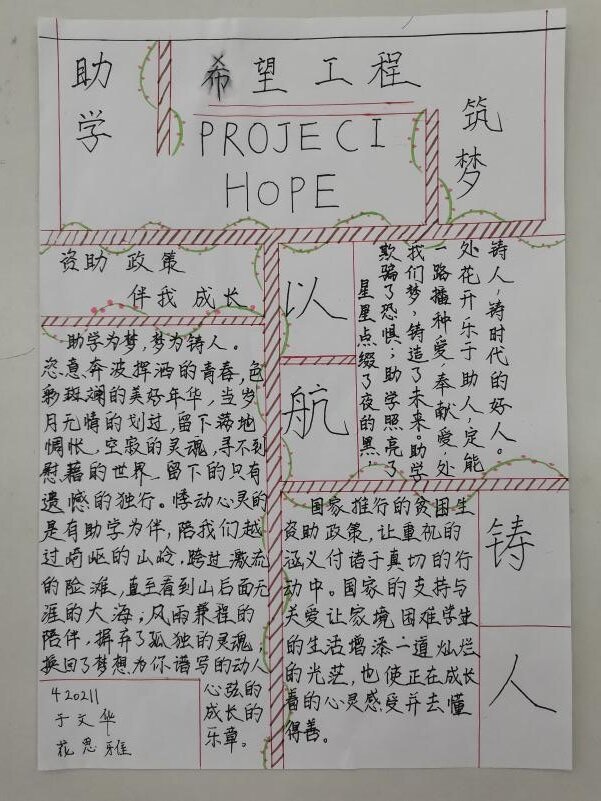 助学
希望工程
PROJECI
HOPE
筑梦
资助政策
伴我成长
助学为梦，梦为铸人。
恣意奔波挥洒的青春，色
彩斑斓的美好年华，当岁
月无情的划过，留下落地
惆怅，空寂的灵魂，寻不到
慰藉的世界，留下的只有
遗憾的独行。悸动心灵的
是有助学为伴，陪我们越
过崎岖的山岭，跨过激流
的险滩，直至看到山后面无
涯的大海；风雨兼程的
陪伴，摒弃了孤独的灵魂；
换回了梦想为你谱写的动人
心弦的
成长的
乐章。
420211
于文华
苑思雅
以
航
星星点缀了夜的黑，
欺骗了恐惧；助学照亮了
我们梦，铸造了未来。助学
一路播种爱，奉献爱，处
处花开乐于助人，定能
铸人，铸时代的好人。
国家推行的贫困生
资助政策，让重视的
涵义付诸于真切的行
动中。国家的支持与
关爱让家境困难学生
的生活增添一道灿烂
的光茫，也使正在成长
着的心灵感受并去懂
得善。
铸
人